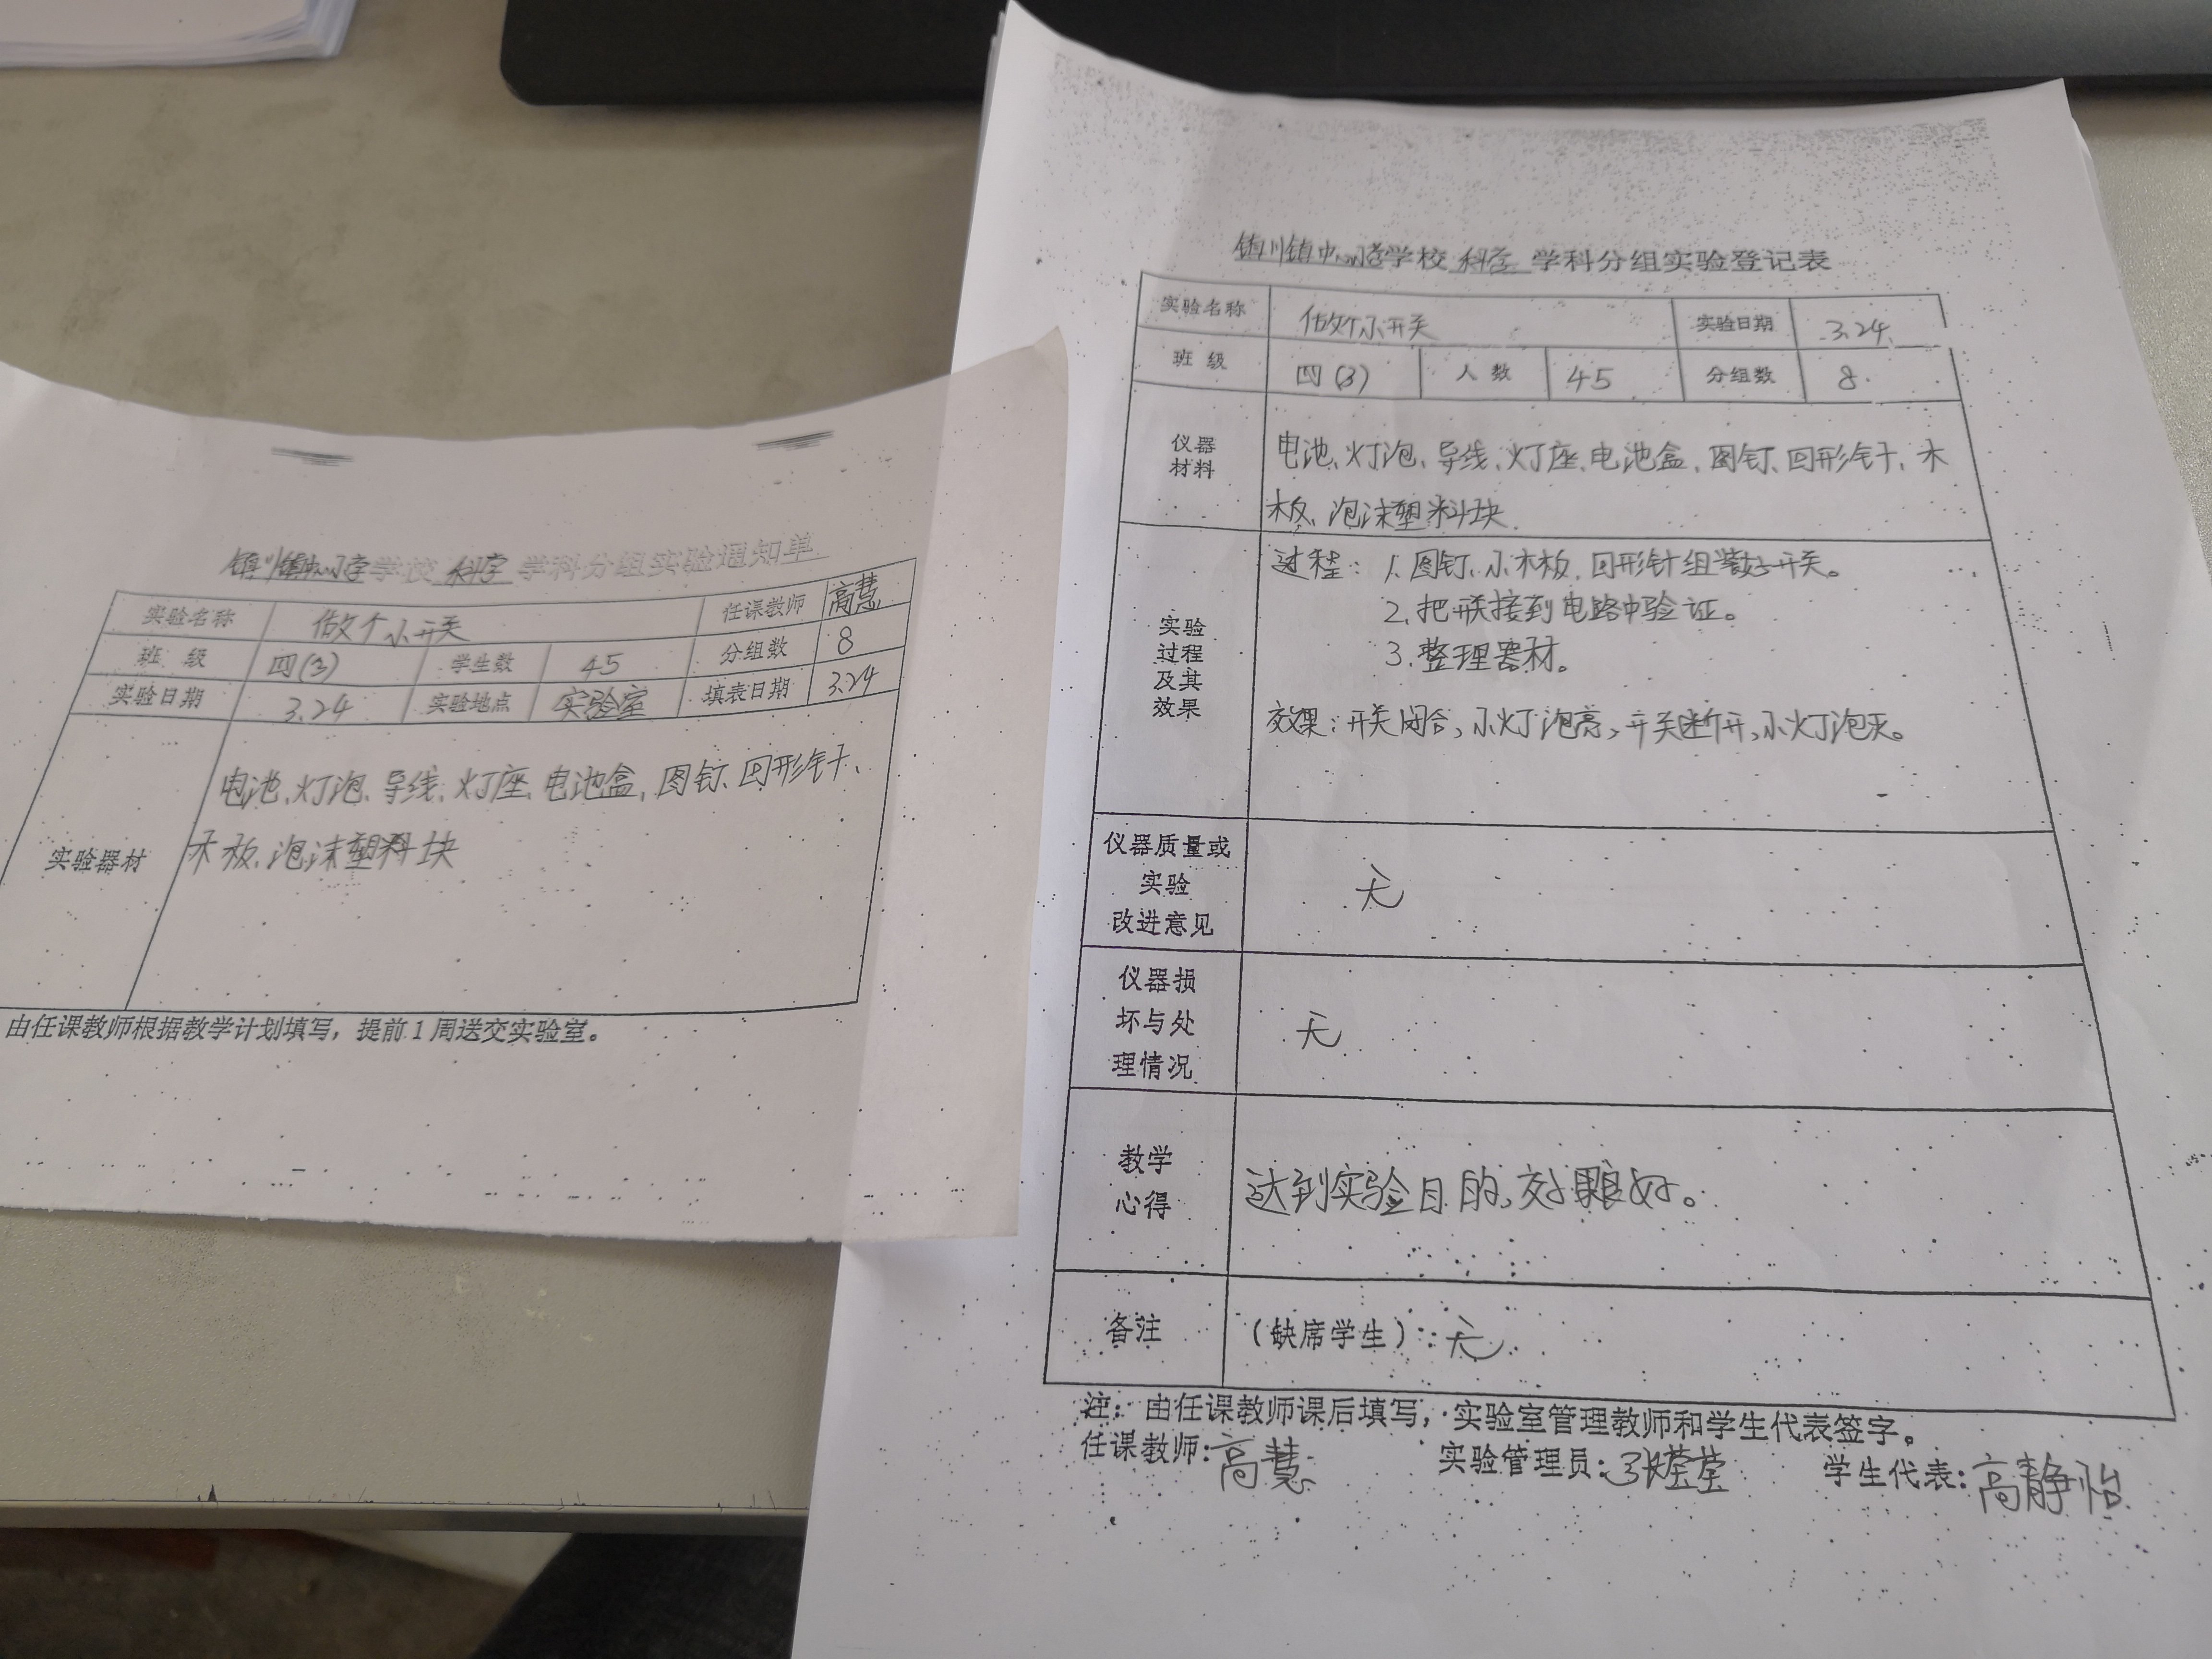 镇川镇中心小学学校 科学 学科分组实验通知单
实验名称 做个小开关 任课教师 高慧
班 级 四(3) 学生数 45 分组数 8
实验日期 3.24 实验地点 实验室 填表日期 3.24
实验器材
电池、灯泡、导线、灯座、电池盒、图钉、回形针、
木板、泡沫塑料块
由任课教师根据教学计划填写，提前1周送交实验室。
镇川镇中心小学学校 科学 学科分组实验登记表
实验名称 做个小开关 实验日期 3.24
班 级 四(3) 人 数 45 分组数 8
仪器
材料
电池、灯泡、导线、灯座、电池盒、图钉、回形针、木
板、泡沫塑料块
实验
过程
及其
效果
过程：1.图钉、小木板、回形针组装好开关。
2.把开关接到电路中验证。
3.整理器材。
效果：开关闭合，小灯泡亮，开关断开，小灯泡灭。
仪器质量或
实验
改进意见
无
仪器损
坏与处
理情况
无
教学
心得
达到实验目的，效果良好。
备注 (缺席学生)：无
注：由任课教师课后填写，实验室管理教师和学生代表签字。
任课教师：高慧 实验管理员：张莹莹 学生代表：高静怡